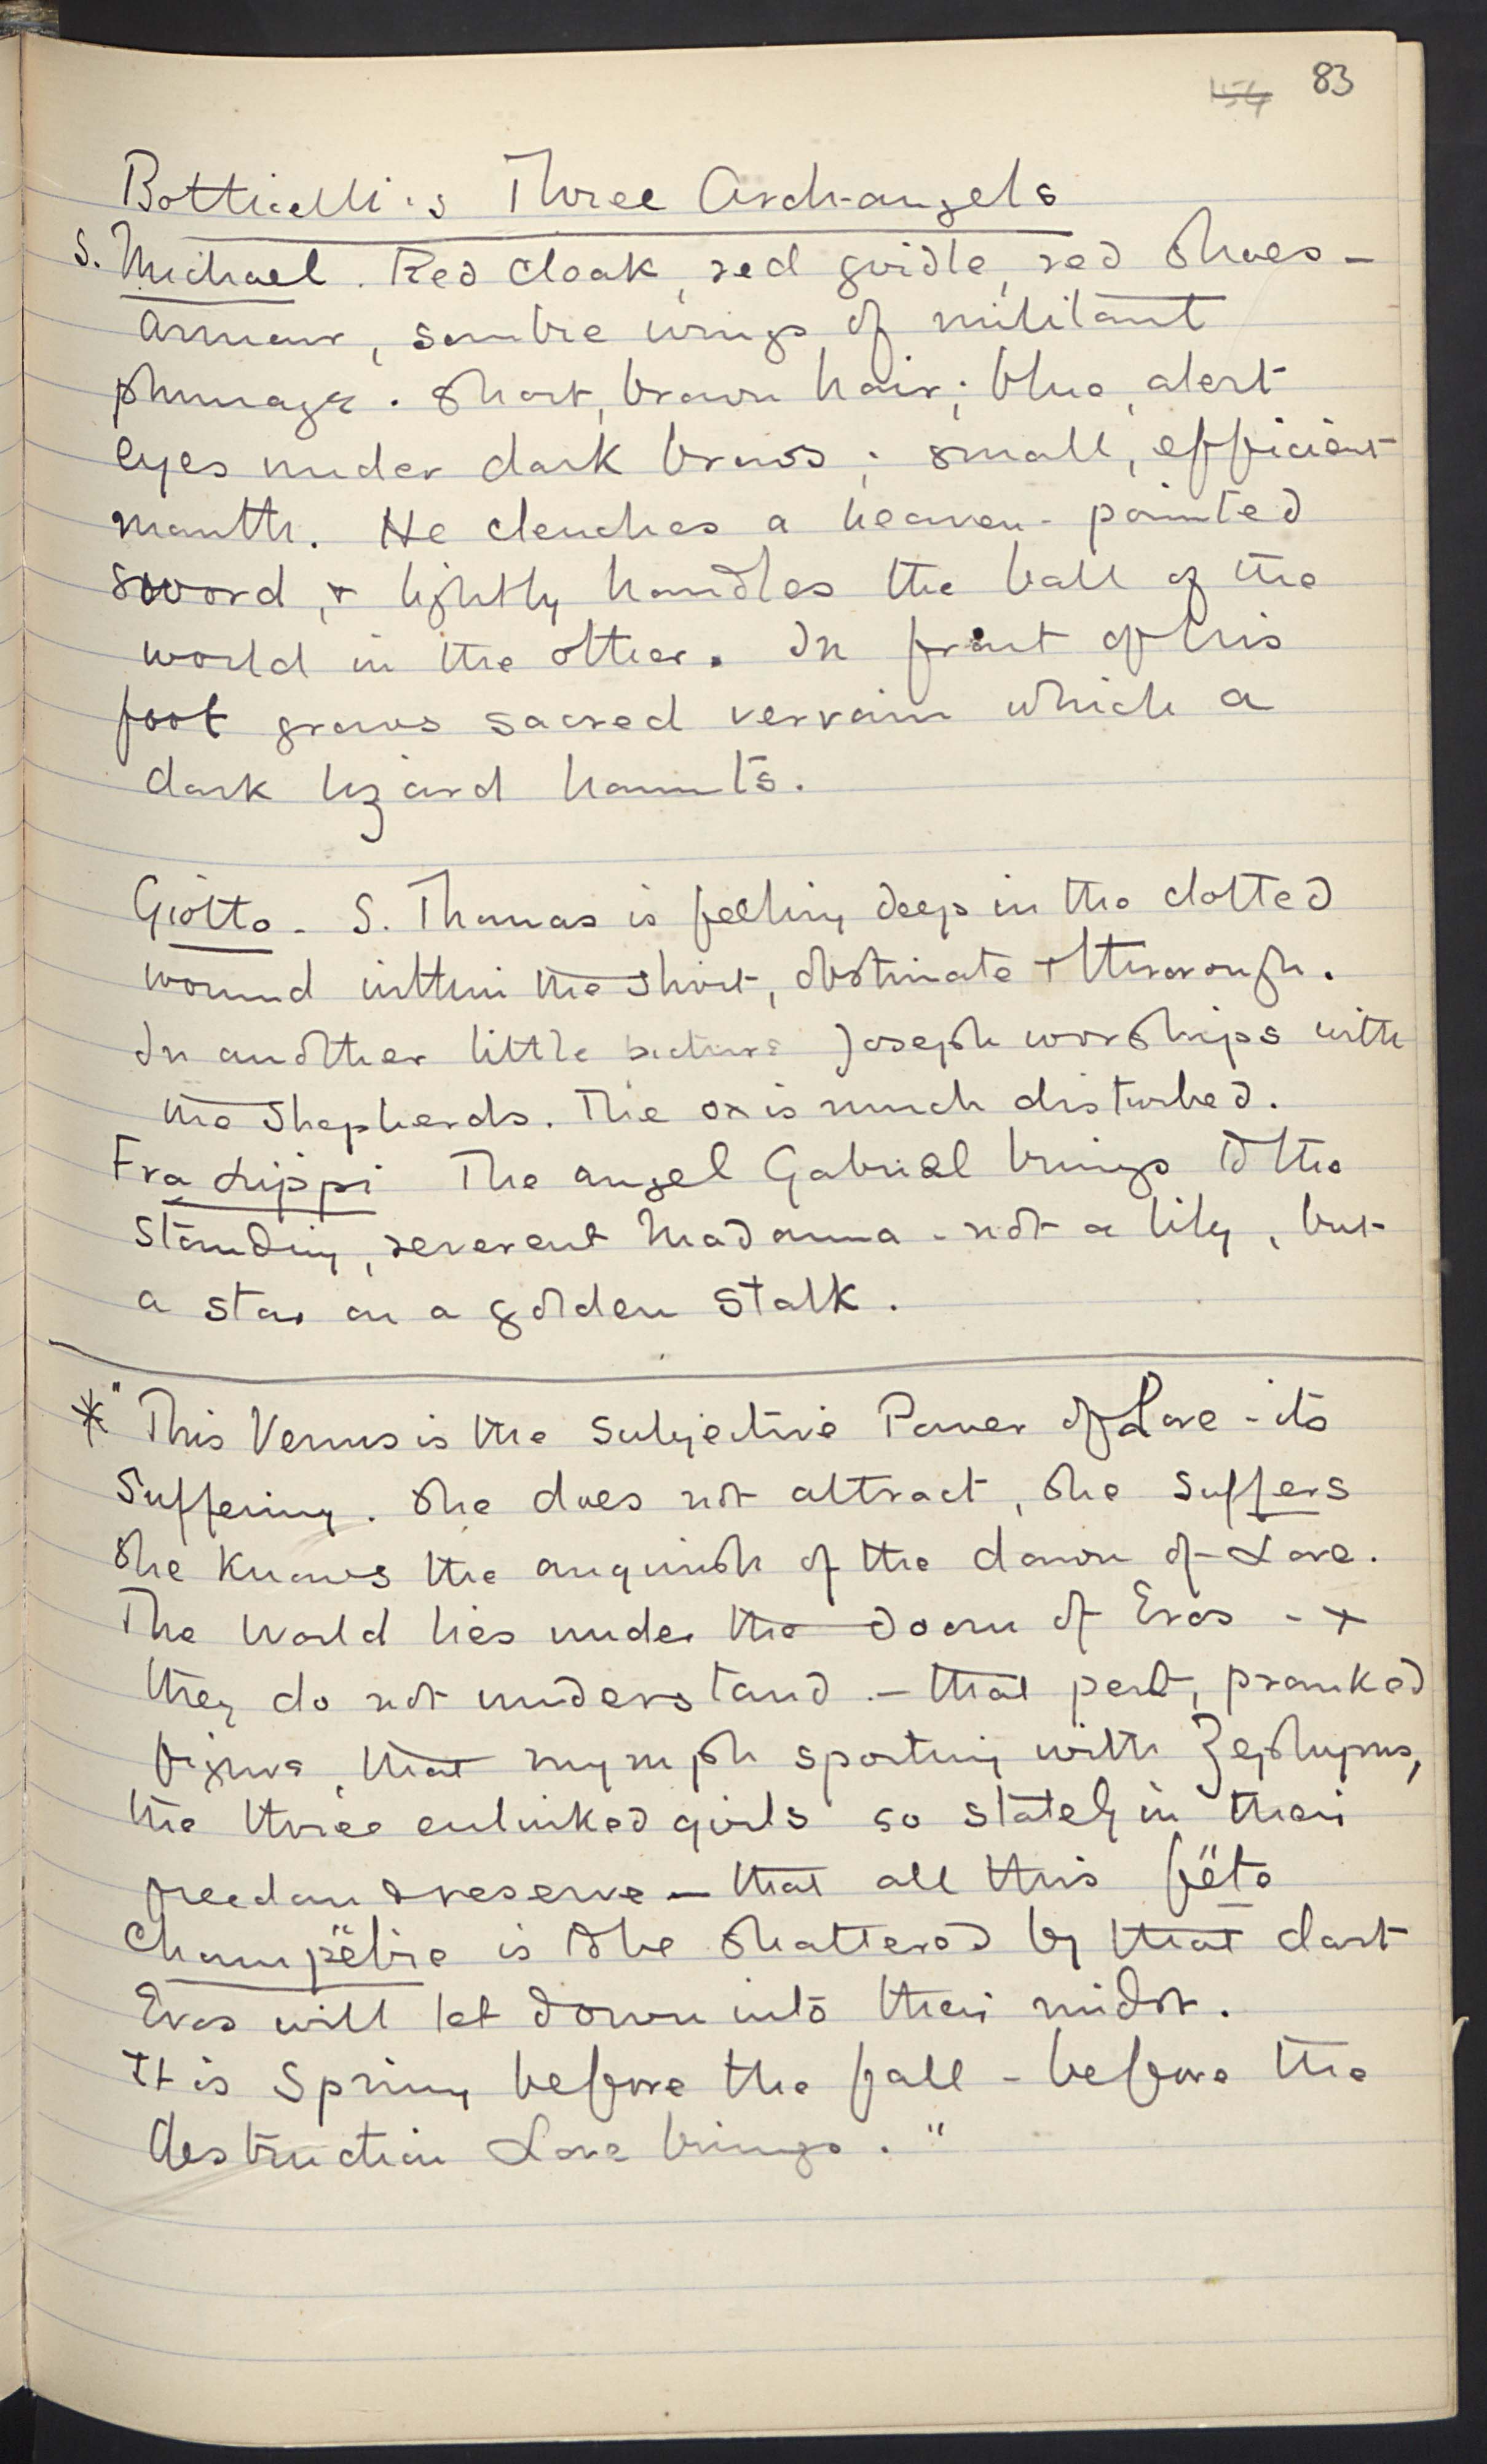 154 83
Botticelli's Three Arch-angels
S. Michael. Red cloak, red girdle, red shoes –
armour, sombre wings of militant
plumage. Short, brown hair; blue, alert
eyes under dark brows; small, efficient
mouth. He clenches a heaven-pointed
sword, & lightly handles the ball of the
world in the other. In front of his
foot grows sacred vervain which a
dark lizard haunts.
Giotto – S. Thomas is feeling deep in the clotted
wound within the shirt, obstinate & thorough.
In another little picture Joseph worships with
the Shepherds. The ox is much disturbed.
Fra Lippi The angel Gabriel brings to the
standing, reverent Madonna – not a lily, but
a star on a golden stalk.
* "This Venus is the Subjective Power of Love – its
Suffering. She does not attract, she suffers
She knows the anguish of the dawn of Love.
The World lies under the doom of Eros – &
they do not understand – that pert, pranked
figure, that nymph sporting with Zephyrus,
the three enlinked girls so stately in their
freedom & reserve – that all this fête
Champêtre is to be shattered by that dart
Eros will let down into their midst.
It is Spring before the fall – before the
destruction Love brings."